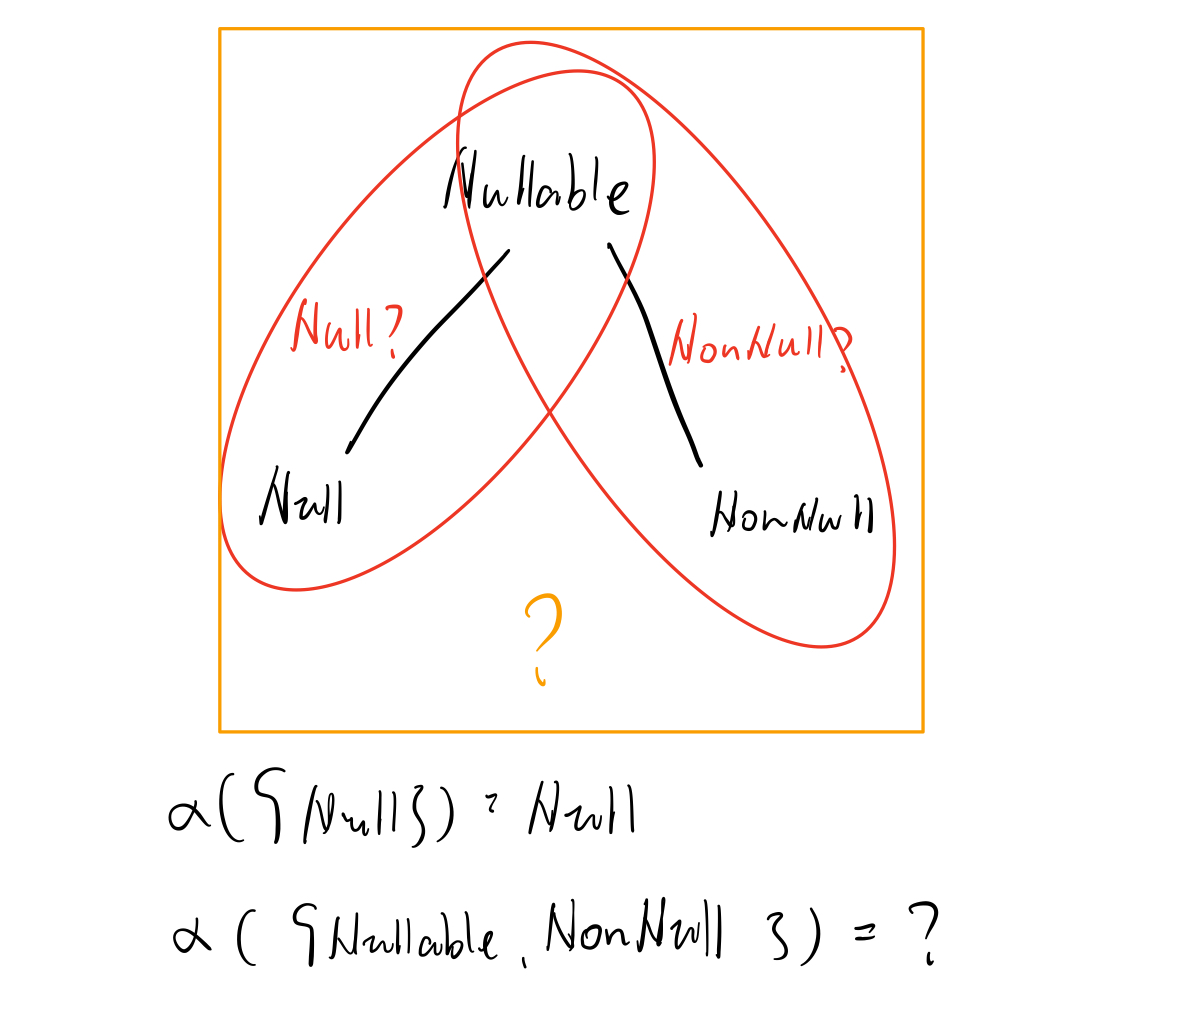 Nullable
Null?
NonNull?
Null
NonNull
?
α({Null}) = Null
α({Nullable, NonNull}) = ?